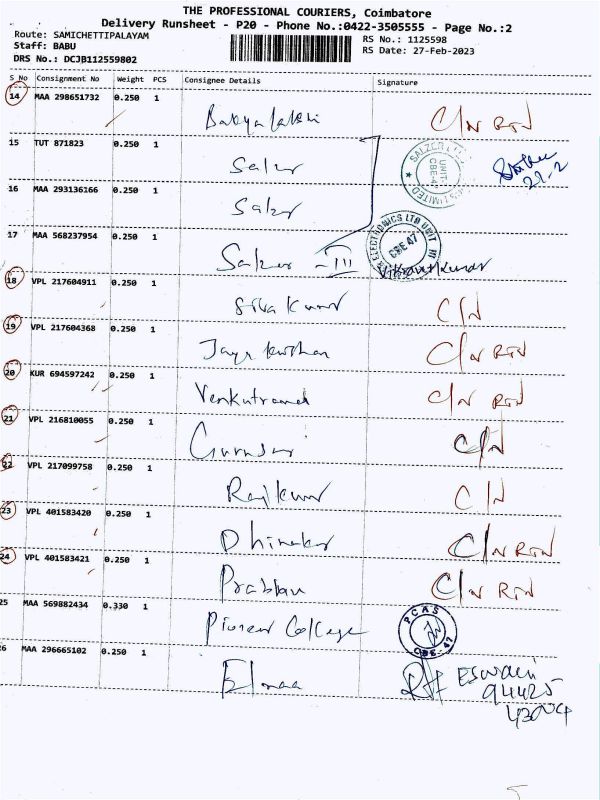 THE PROFESSIONAL COURIERS, Coimbatore
Delivery Runsheet - P20 - Phone No.:0422-3505555 - Page No.:2
Route: SAMICHETTIPALAYAM
Staff: BABU
DRS No.: DCJB112559802
RS No.: 1125598
RS Date: 27-Feb-2023
S No Consignment No Weight PCS Consignee Details Signature
14 MAA 298651732 0.250 1
C/N RTN
15 TUT 871823 0.250 1
Salzer
SALZER
UNIT-
CBE-47
LIMITED
16 MAA 293136166 0.250 1
Salzer
17 MAA 568237954 0.250 1
Salzer - III
ELECTRONICS LTD UNIT III
CBE 47
18 VPL 217604911 0.250 1
Siva kumar
C/N
19 VPL 217604368 0.250 1
C/N RTN
20 KUR 694597242 0.250 1
C/N RTN
21 VPL 216810055 0.250 1
C/N
22 VPL 217099758 0.250 1
Rajkumar
C/N
23 VPL 401583420 0.250 1
C/N RTN
24 VPL 401583421 0.250 1
Prabhu
C/N RTN
25 MAA 569882434 0.330 1
Pioneer College
PCAS
CBE-47
26 MAA 296665102 0.250 1
Eswari
94425